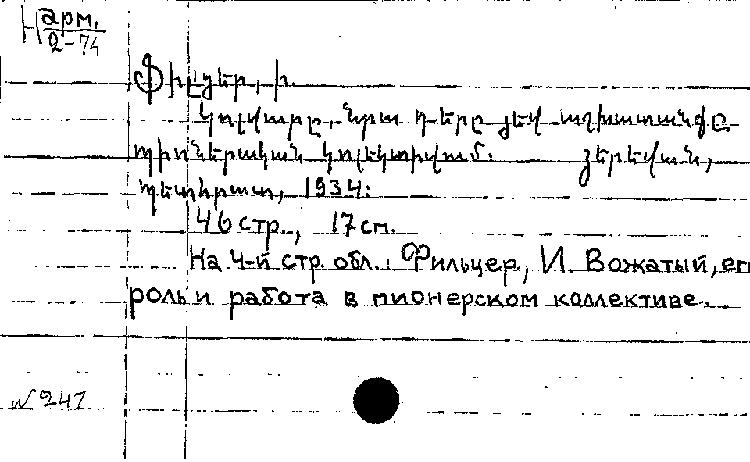 Н арм.
2-74
Ֆիլցեր, ի.
Կոլվարը, նրա դերը յեվ աշխատանքը
պիոներական կոլեկտիվում. Յերեվան,
պետհրատ, 1934:
46 стр., 17 см.
На 4-й стр. обл.: Фильцер, И. Вожатый, ег
роль и работа в пионерском коллективе.
N 247